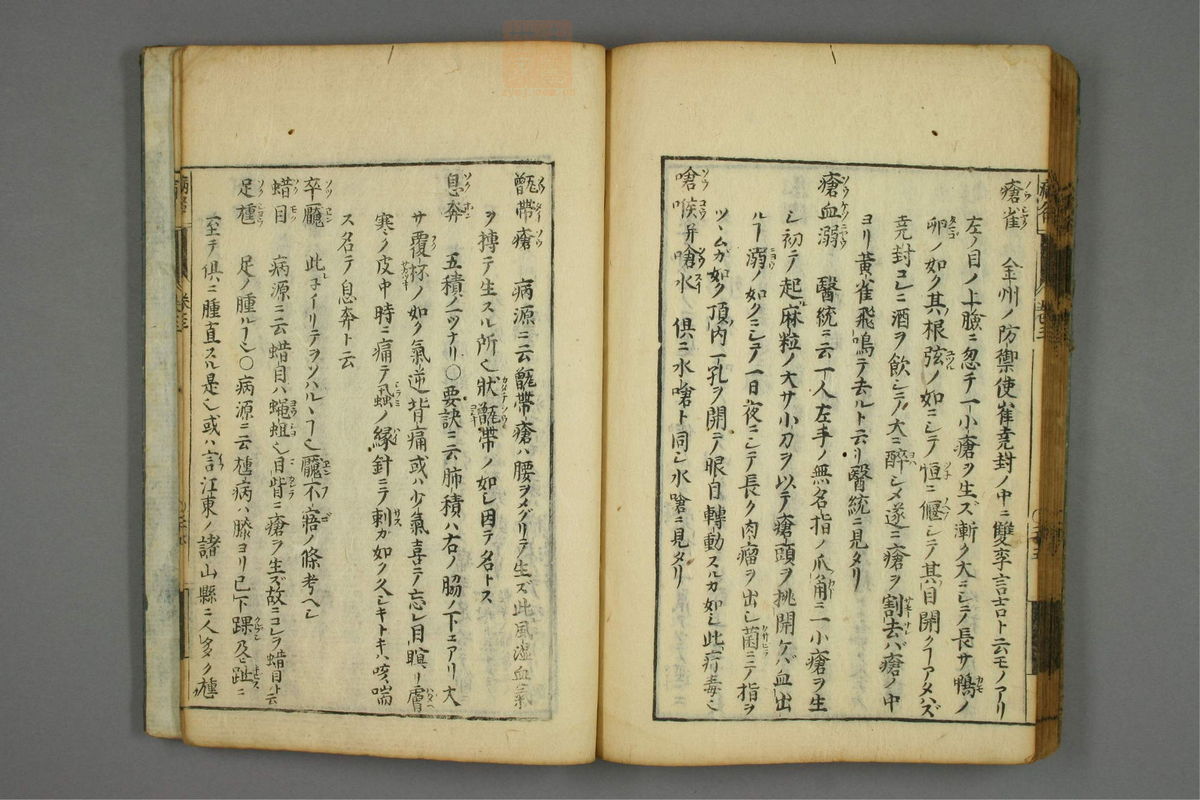 瘡雀 金州ノ防禦使崔堯封ノ中ニ雙李言吉ト云モノアリ
左ノ目ノ上瞼ニ忽チ一小瘡ヲ生ズ漸ク大ニシテ長サ鴨ノ
卵ノ如ク其根弦ノ如ニシテ恒ニ偃シテ其目開クヿアタハズ
堯封コレニ酒ヲ飲シテ大ニ醉シメ遂ニ瘡ヲ割去バ瘡ノ中
ヨリ黃雀飛鳴テ去ルト云リ醫統ニ見タリ
瘡血溺 醫統ニ云一人左手ノ無名指ノ爪角ニ一小瘡ヲ生
シ初テ起麻粒ノ大サ小刀ヲ以テ瘡頭ヲ挑開ケバ血出
ルヿ溺ノ如クニシテ一日夜ニシテ長ク肉瘤ヲ出シ菌ニテ指ヲ
ツヽムガ如ク頂內一孔ヲ開テ眼目轉動スルガ如シ此疔毒也
嗆喉并嗆水 俱ニ水嗆ト同シ水嗆ニ見タリ
甑帶瘡 病源ニ云甑帶瘡ハ腰ヲメグリテ生ズ此風湿血氣
ヲ搏テ生スル所也狀甑帶ノ如シ因テ名トス
息奔 五積ノ一ツナリ〇要訣ニ云肺積ハ右ノ脇ノ下ニアリ大
サ覆杯ノ如ク氣逆背痛或ハ少氣喜ニテ忘レ目瞑リ膚
寒ク皮中時ニ痛テ蝨ノ緣針ニテ刺カ如ク久シキトキハ咳喘
ス名テ息奔ト云
卒魘 此子イリテヲソハルヽヿ也魘不寤ノ條考ヘシ
蜡目 病源ニ云蜡目ハ蝇蛆也目眥ニ瘡ヲ生ズ故ニコレヲ蜡目ト云
足尰 足ノ腫ルヽ也〇病源ニ云尰病ハ膝ヨリ已下踝及ヒ趾ニ
至テ俱ニ腫直スル是也或ハ言江東ノ諸山縣ニ人多ク尰